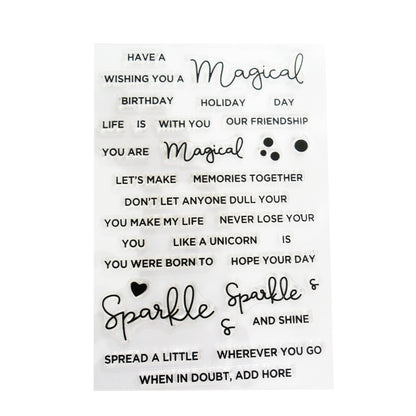 HAVE A
WISHING YOU A Magical
BIRTHDAY HOLIDAY DAY
LIFE IS WITH YOU OUR FRIENDSHIP
YOU ARE Magical
LET'S MAKE MEMORIES TOGETHER
DON'T LET ANYONE DULL YOUR
YOU MAKE MY LIFE NEVER LOSE YOUR
YOU LIKE A UNICORN IS
YOU WERE BORN TO HOPE YOUR DAY
Sparkle Sparkle s
s AND SHINE
SPREAD A LITTLE WHEREVER YOU GO
WHEN IN DOUBT, ADD HORE